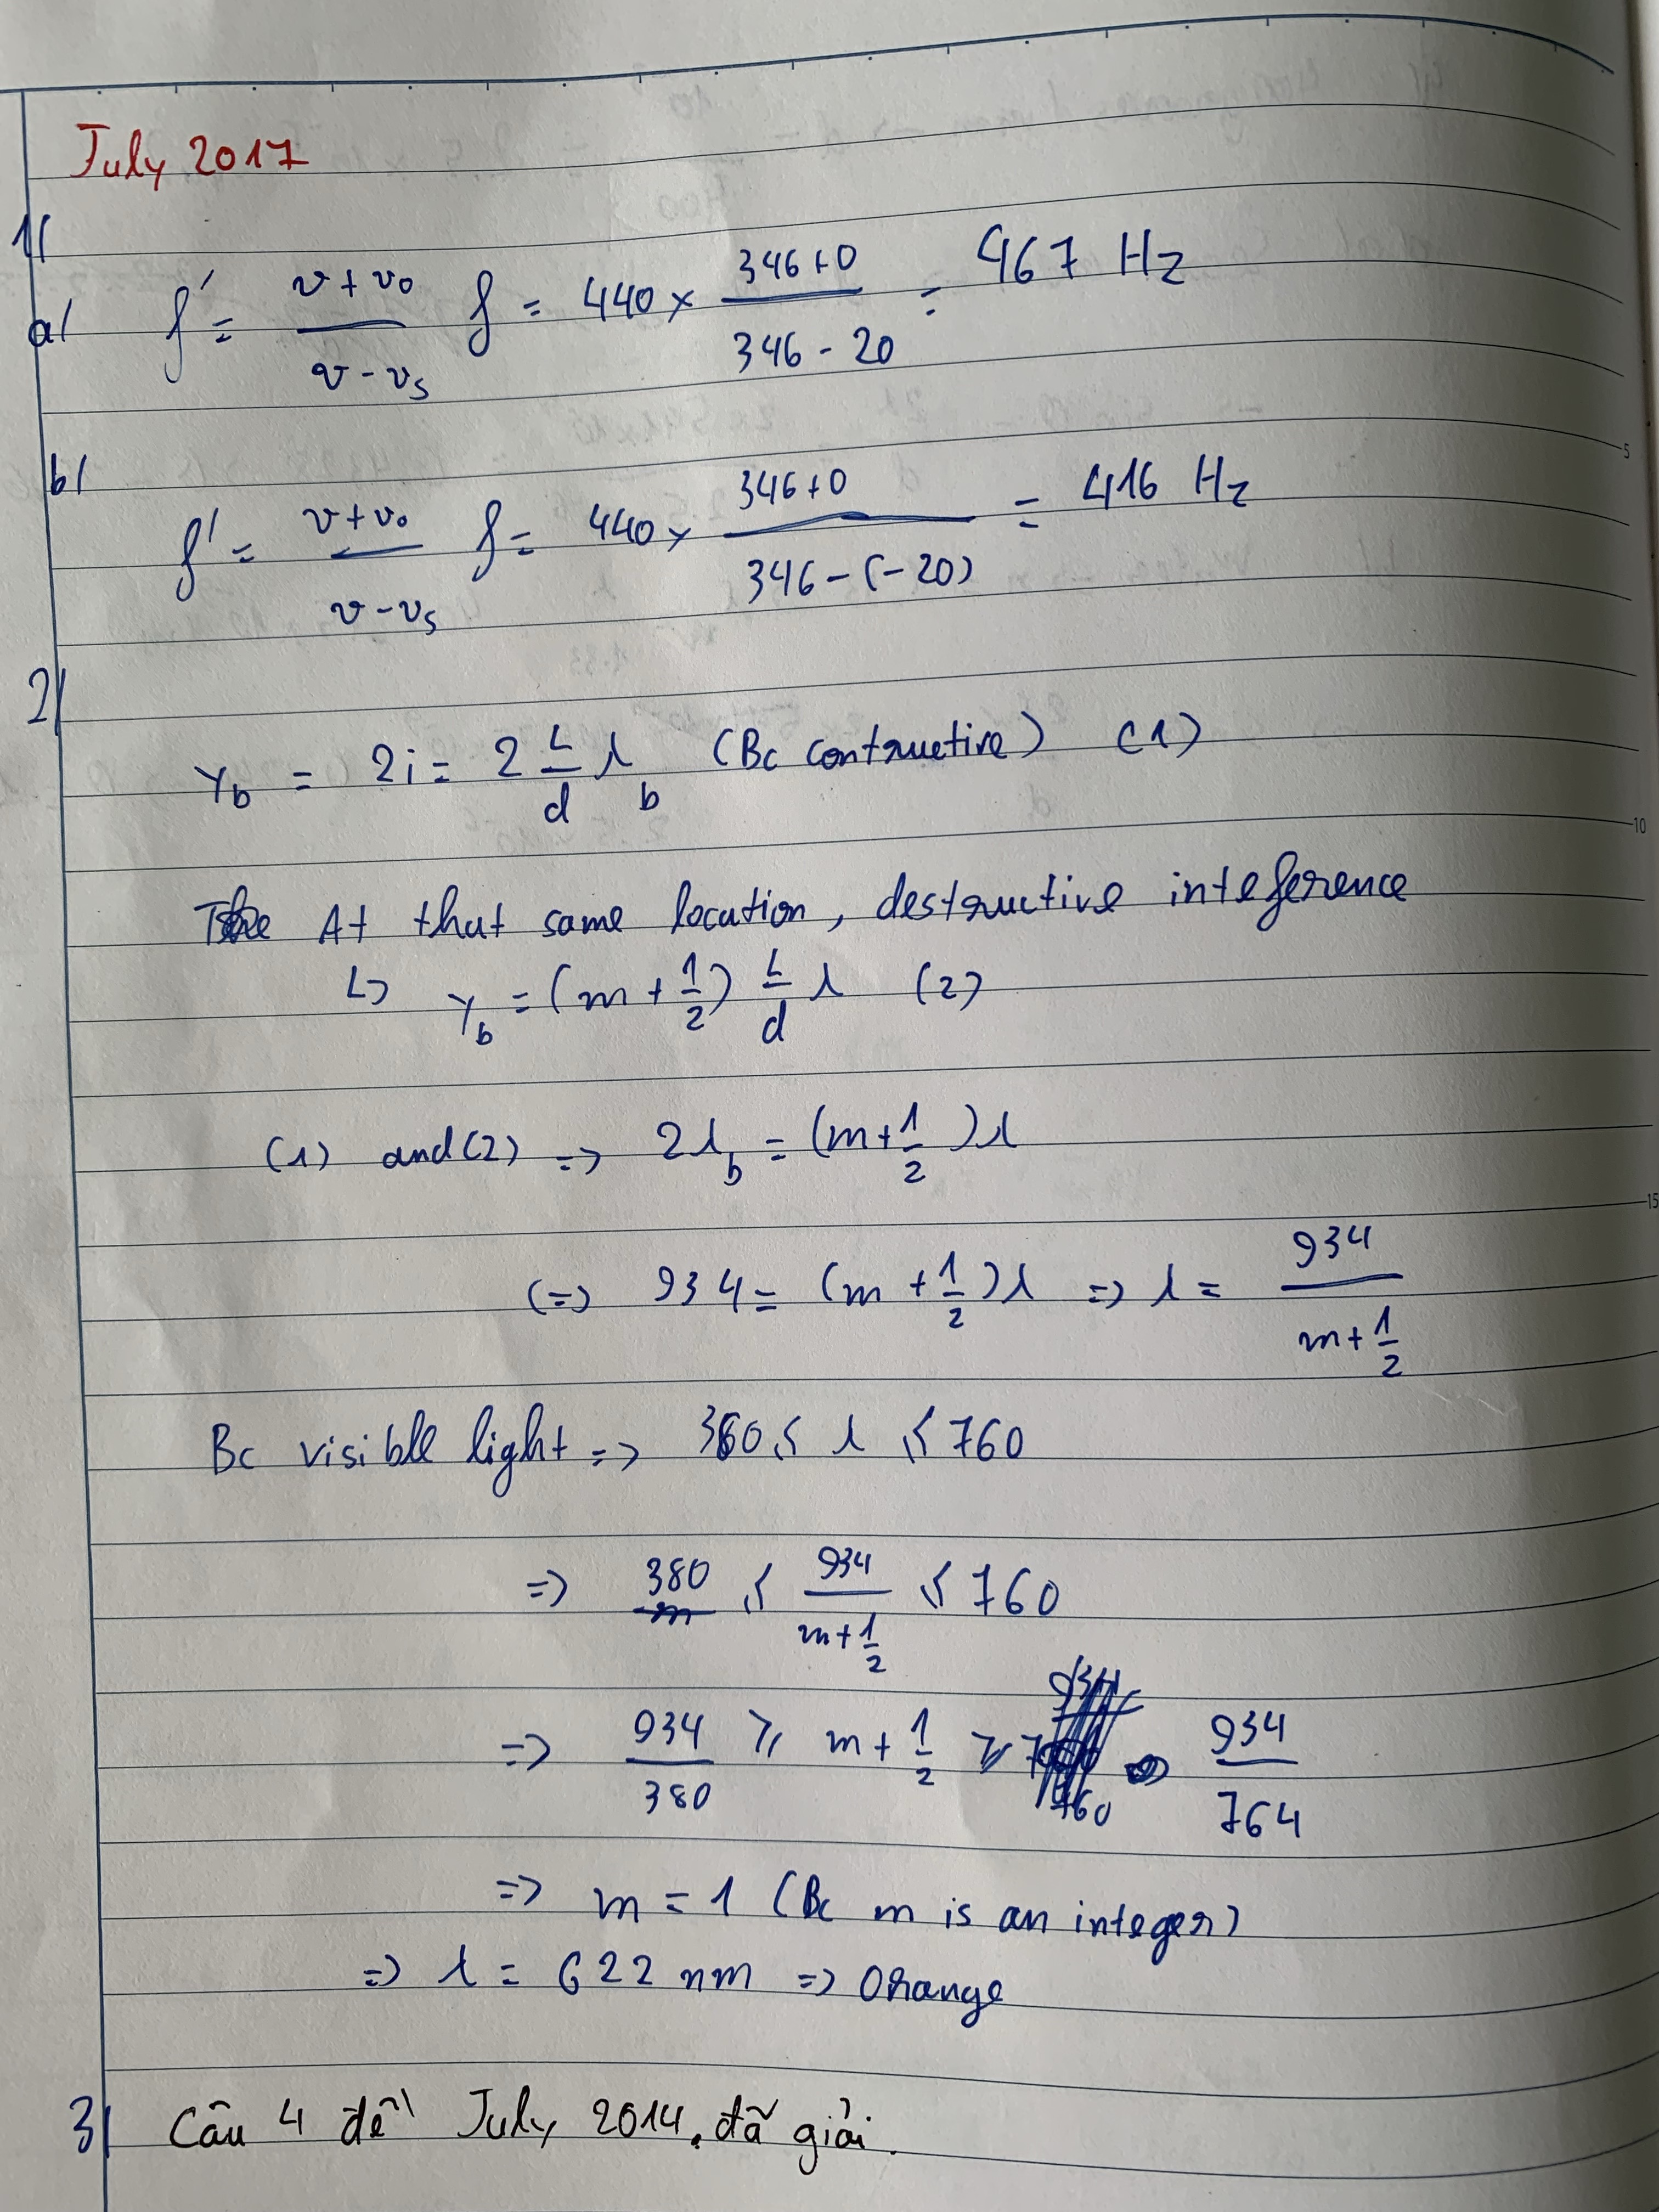 July 2017
1/
a/ f' = (v + v₀)/(v - vₛ) f = 440 × (346+0)/(346 - 20) = 467 Hz
b/ f' = (v + v₀)/(v - vₛ) f = 440 × (346+0)/(346 - (-20)) = 416 Hz
2/
y_b = 2i = 2 L/d λ_b (Bc contructive) (1)
At that same location, destructive inteference
↳ y_b = (m + 1/2) L/d λ (2)
(1) and (2) => 2λ_b = (m + 1/2) λ
(=) 934 = (m + 1/2) λ => λ = 934/(m + 1/2)
Bc visible light => 380 ≤ λ ≤ 760
=> 380 ≤ 934/(m + 1/2) ≤ 760
=> 934/380 ≥ m + 1/2 ≥ 934/764
=> m = 1 (Bc m is an integer)
=> λ = 622 nm => Orange
3/ Câu 4 đề July 2014. đã giải.